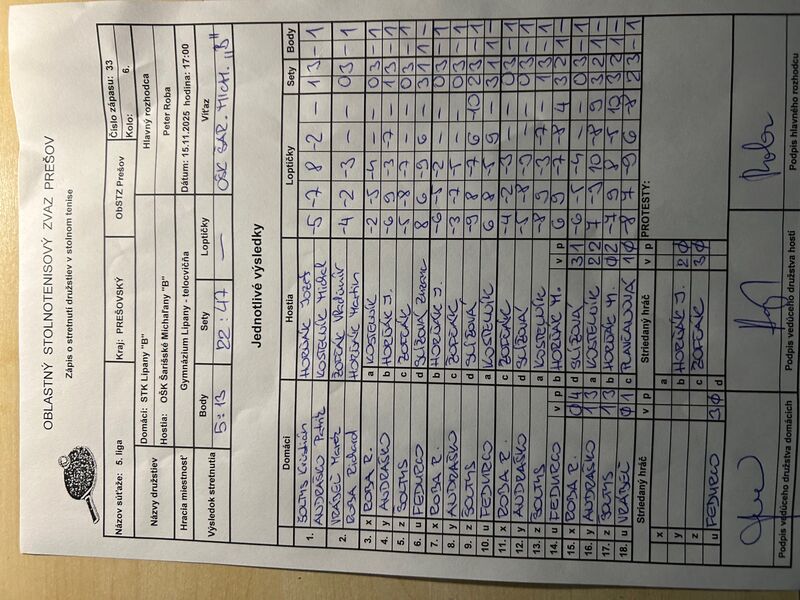 OBLASTNÝ STOLNOTENISOVÝ ZVAZ PREŠOV
Zápis o stretnutí družstiev v stolnom tenise
Názov súťaže: 5. liga Kraj: PREŠOVSKÝ ObSTZ Prešov Číslo zápasu: 33
Kolo: 6.
Názvy družstiev Domáci: STK Lipany "B" Hlavný rozhodca
Hostia: OŠK Šarišské Michaľany "B" Peter Roba
Hracia miestnosť Gymnázium Lipany - telocvičňa Dátum: 15.11.2025 hodina: 17:00
Výsledok stretnutia Body Sety Loptičky Víťaz
5:13 22:47 — OŠK ŠAR. MICH. "B"
Jednotlivé výsledky
Domáci Hostia Loptičky Sety Body
1. HORŇÁK Jozef -5 -7 8 -2 – 1 3 – 1
ANDRAŠKO Patrik KOSTELNÍK Michal
2. VRABEĽ ZOFČÁK Vladimír -4 -2 -3 – – 0 3 – 1
ROBA Richard HORŇÁK Martin
3. x ROBA R. a KOSTELNÍK -2 -5 -4 – – 0 3 – 1
4. y ANDRAŠKO b HORŇÁK J. -6 9 -3 -7 – 1 3 – 1
5. z c ZOFČÁK -5 -8 -7 – – 0 3 – 1
6. u FEDURCO d 8 6 -9 6 – 3 1 1 –
7. x ROBA R. b HORŇÁK J. -6 -5 -2 – – 0 3 – 1
8. y ANDRAŠKO c ZOFČÁK -3 -7 -5 – – 0 3 – 1
9. z d -9 8 -7 6 -10 2 3 – 1
10. u FEDURCO a KOSTELNÍK 6 8 -5 9 – 3 1 1 –
11. x ROBA R. c ZOFČÁK -4 -2 -3 – – 0 3 – 1
12. y ANDRAŠKO d -5 -8 – – 0 3 – 1
13. z a KOSTELNÍK -8 9 -3 -7 – 1 3 – 1
14. u FEDURCO v p b HORŇÁK M. v p 6 9 -7 -8 4 3 2 1 –
15. x ROBA R. 0 4 d 3 1 -6 -5 -4 – – 0 3 – 1
16. y ANDRAŠKO 1 3 a KOSTELNÍK 2 2 7 10 -8 9 3 2 1 –
17. z 1 3 b HORŇÁK M. 0 2 -7 9 8 -5 10 3 2 1 –
18. u VRABEĽ 0 1 c 1 0 -8 7 -9 6 -8 2 3 – 1
Striedaný hráč v p Striedaný hráč v p PROTESTY:
x a
y b HORŇÁK J. 2 0
z c ZOFČÁK 3 0
u FEDURCO 3 0 d
Podpis vedúceho družstva domácich Podpis vedúceho družstva hostí Podpis hlavného rozhodcu